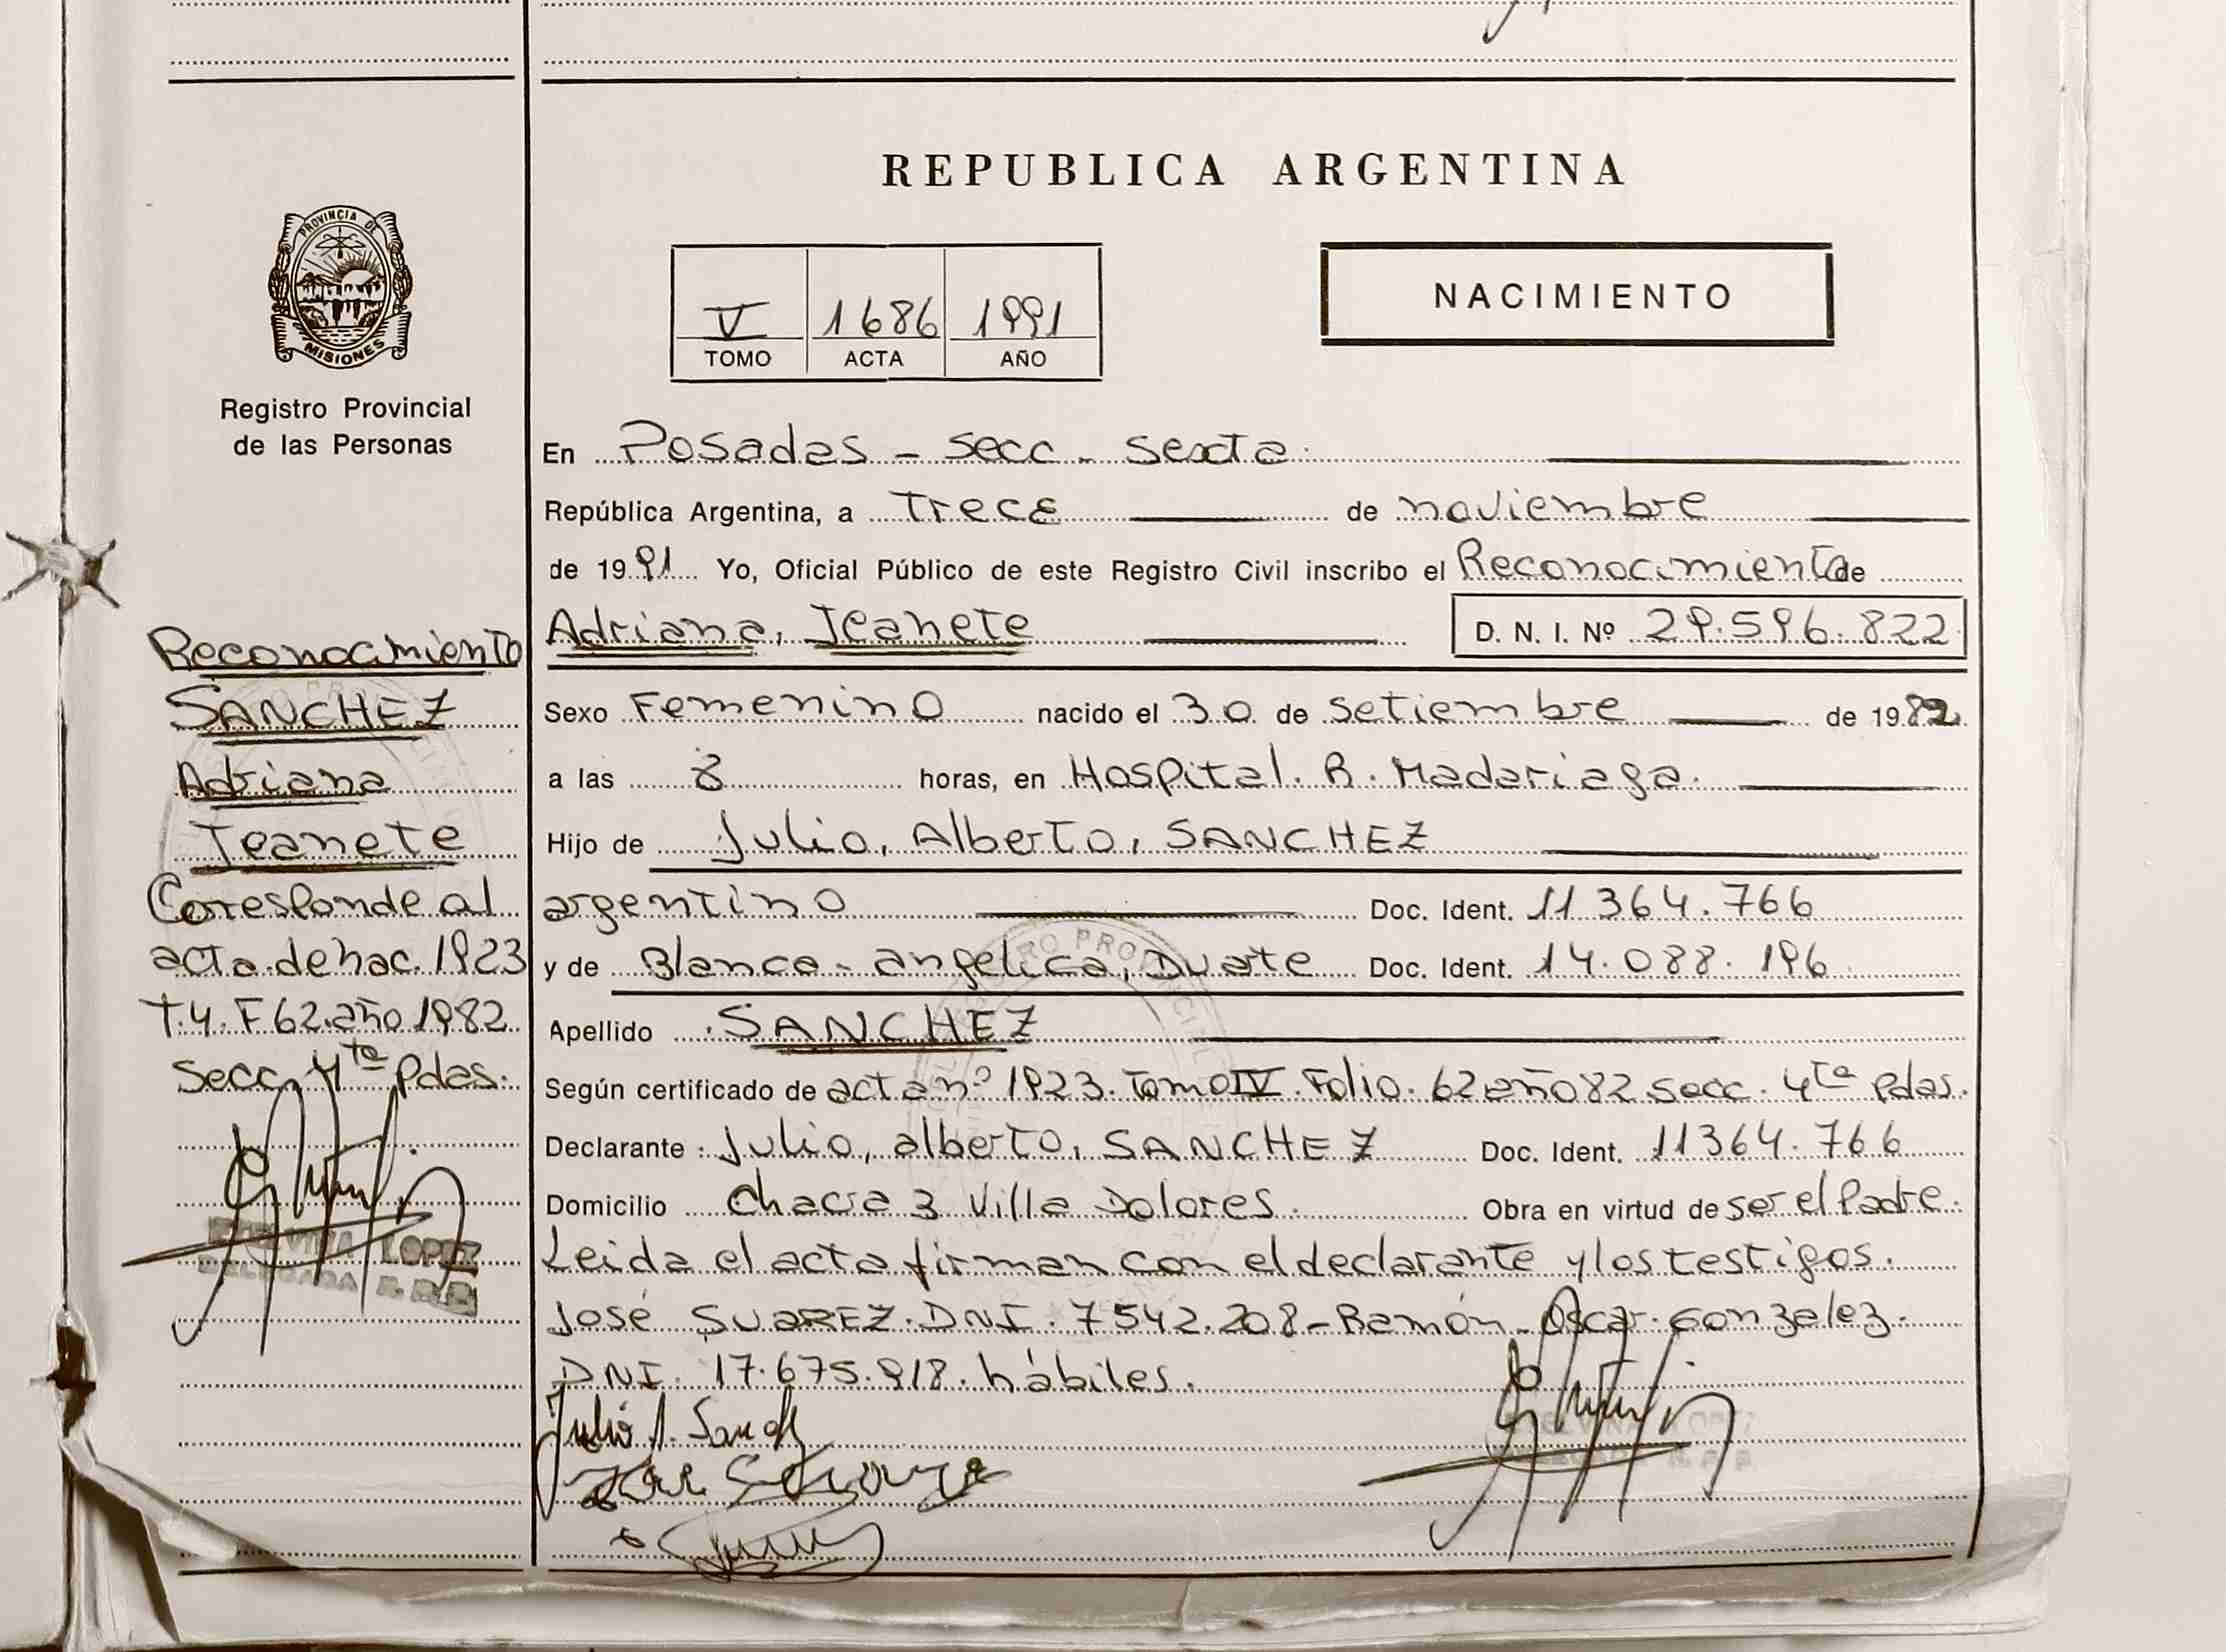 REPUBLICA ARGENTINA
PROVINCIA DE
MISIONES
Registro Provincial
de las Personas
V 1686 1991
TOMO ACTA AÑO
NACIMIENTO
En Posadas - secc - sexta.
República Argentina, a Trece de noviembre
de 1991 Yo, Oficial Público de este Registro Civil inscribo el Reconocimiento de
Adriana, Jeanete D. N. I. Nº 29.596.822
Sexo Femenino nacido el 30 de setiembre de 1982
a las 8 horas, en Hospital. R. Madariaga.
Hijo de Julio, Alberto, SANCHEZ
argentino Doc. Ident. 11 364.766
y de Blanca - angelica, Duarte Doc. Ident. 14.088.196
Apellido SANCHEZ
Según certificado de acta nº 1923. Tomo IV. Folio. 62 año 82 secc. 4ta Pdas.
Declarante : Julio, alberto, SANCHEZ Doc. Ident. 11364.766
Domicilio Chacra 3 Villa Dolores. Obra en virtud de ser el Padre.
Leida el acta firman con el declarante y los testigos.
José SUAREZ. DNI. 7542.208 - Ramón - Oscar. Gonzalez.
DNI. 17.675.918. hábiles.
Julio A. Sanch
Reconocimiento
SANCHEZ
Adriana
Jeanete
Corresponde al
acta de nac. 1923
T.4. F 62. año 1982
Secc. 4ta Pdas.
LOPEZ
DELEGADA R. P. P.